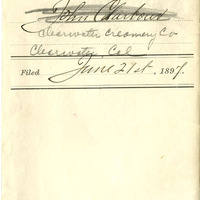 John C
Clearwater Creamery Co
Clearwater, Cal
Filed June 21st, 1897.